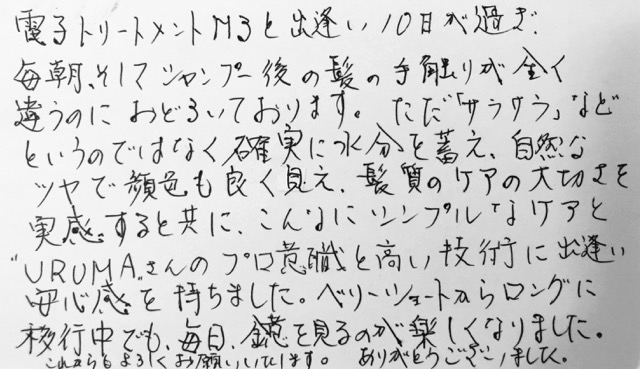 電子トリートメントM3と出逢い10日が過ぎ、
毎朝、そしてシャンプー後の髪の手触りが全く
違うのにおどろいております。ただ「サラサラ」など
というのではなく確実に水分を蓄え、自然な
ツヤで顔色も良く見え、髪質のケアの大切さを
実感すると共に、こんなにシンプルなケアと
"URUMA"さんのプロ意識と高い技術に出逢い
安心感を持ちました。ベリーショートからロングに
移行中でも、毎日、鏡を見るのが楽しくなりました。
これからもよろしくお願いいたします。 ありがとうございました。